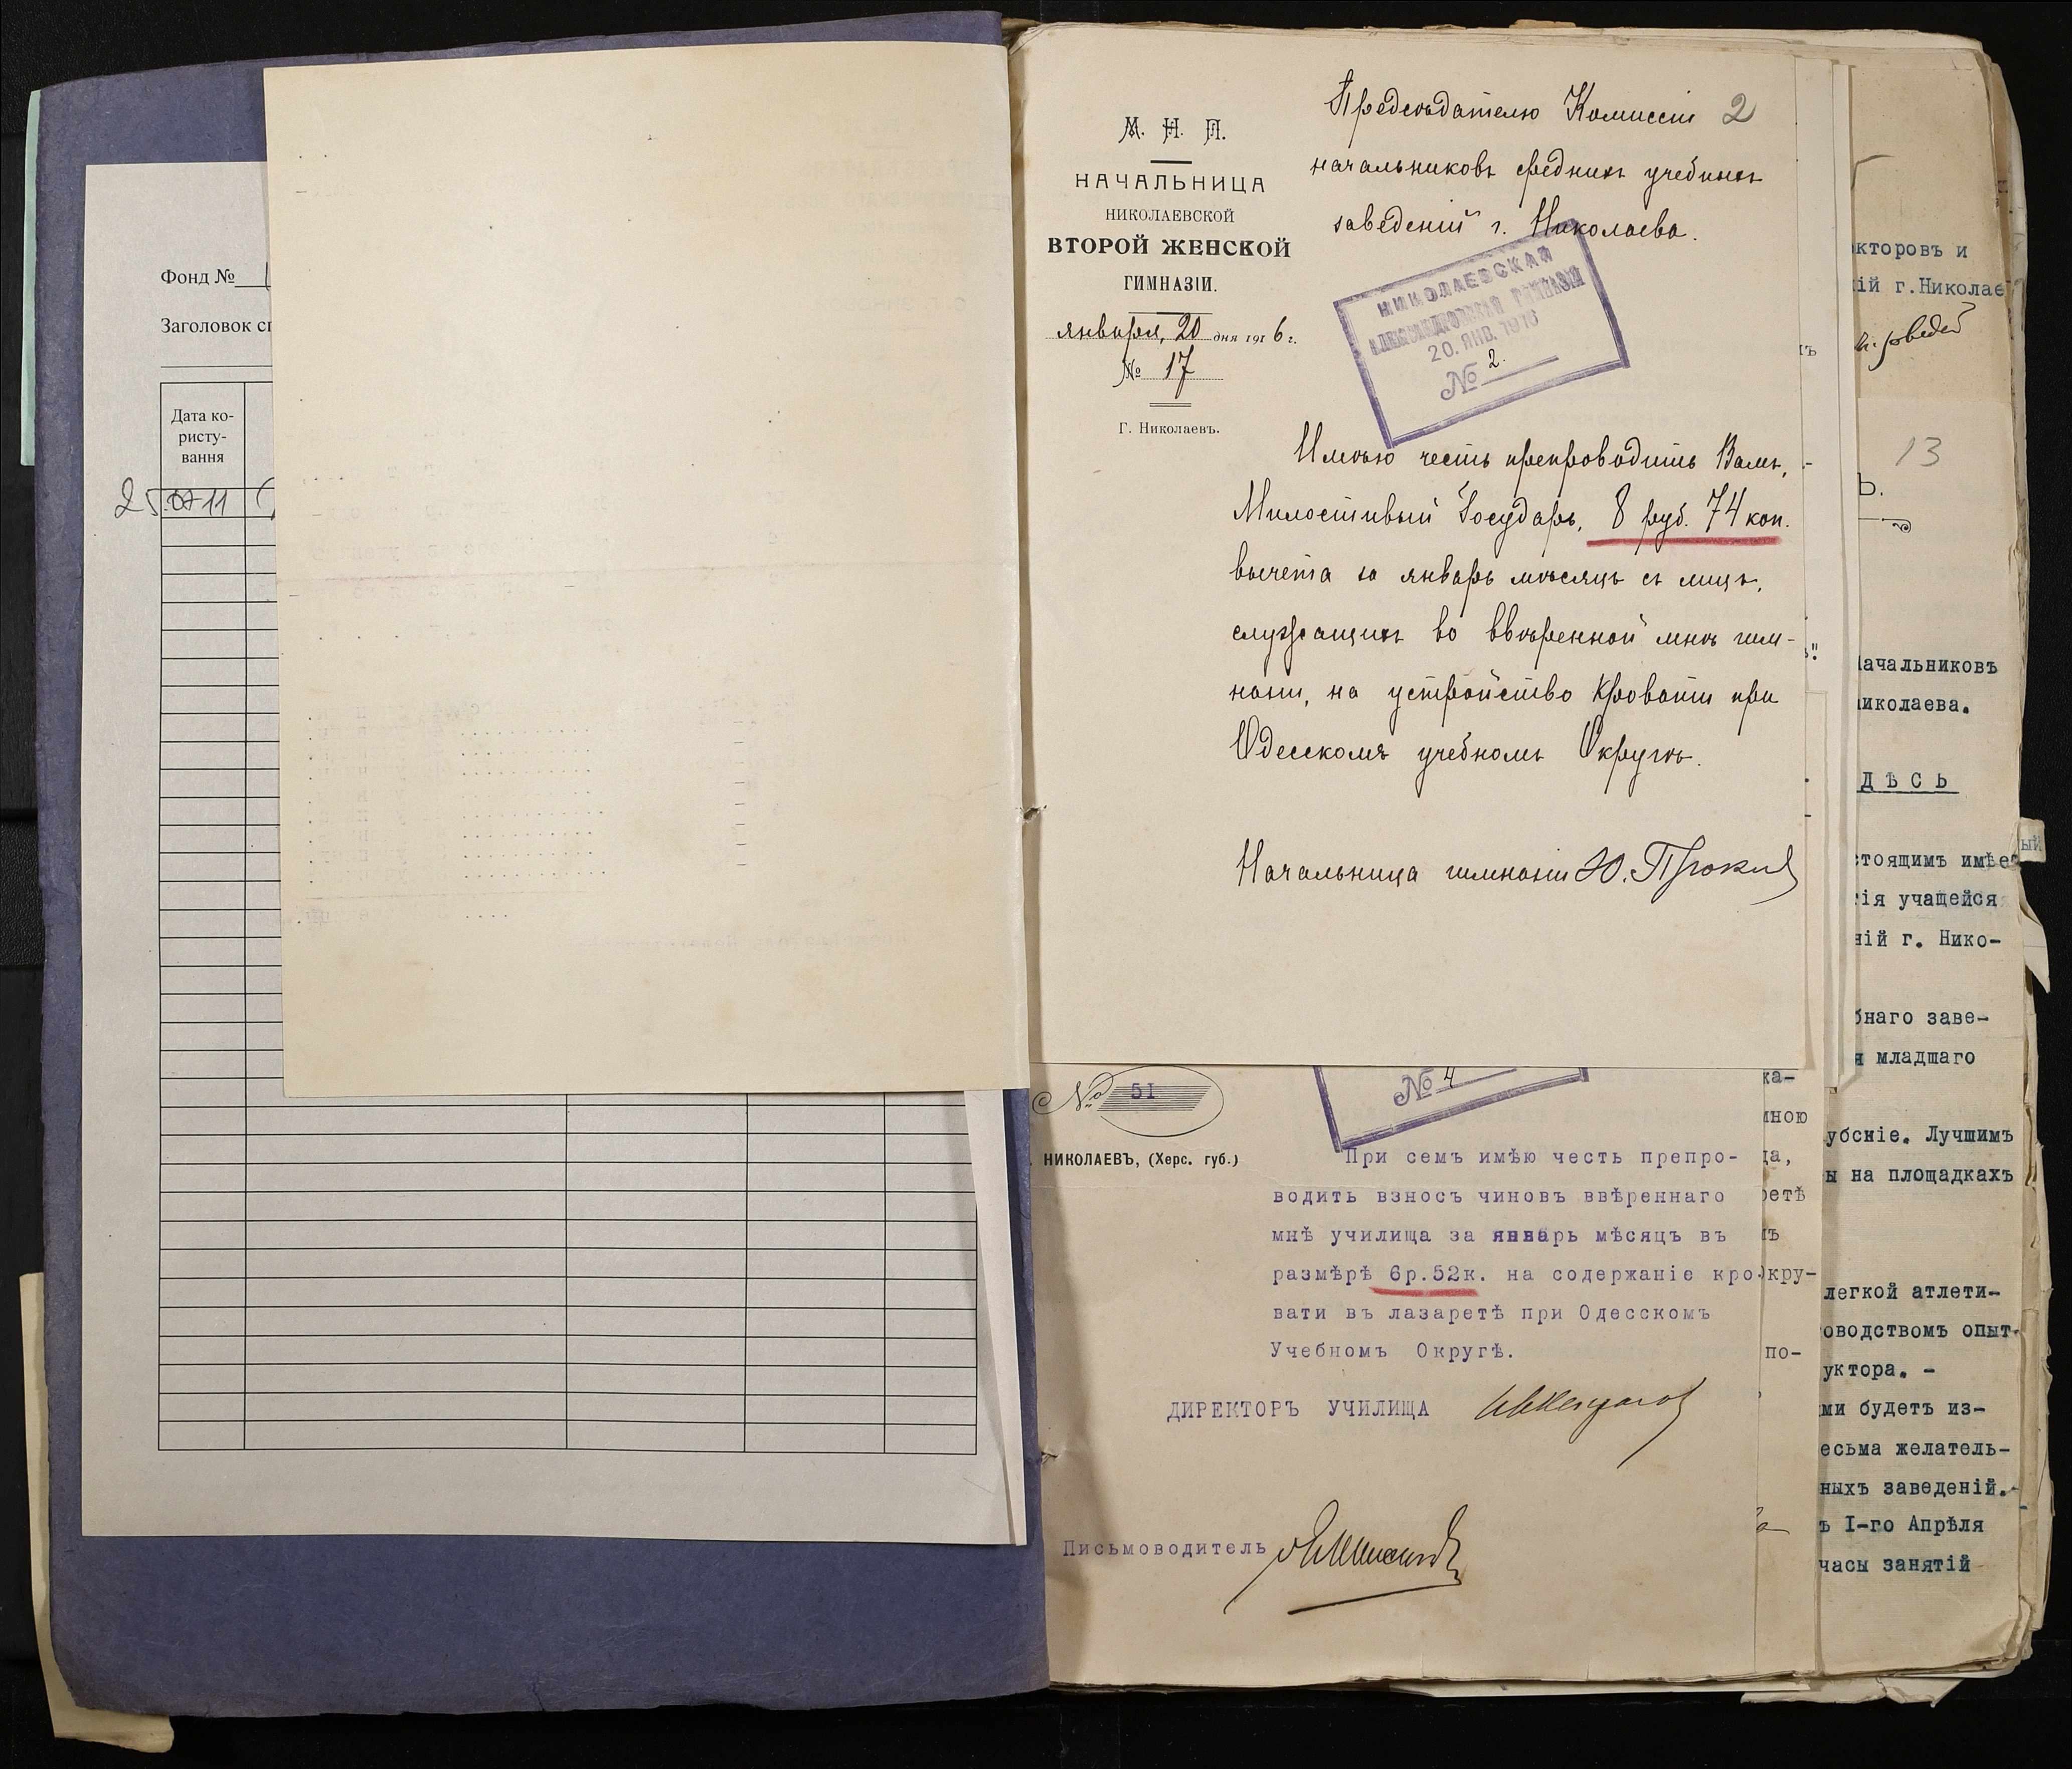 Фонд №
Заголовок
Дата ко-
ристу-
вання
25.07.11
М. Н. П.
НАЧАЛЬНИЦА
НИКОЛАЕВСКОЙ
ВТОРОЙ ЖЕНСКОЙ
ГИМНАЗІИ.
января, 20 дня 1916 г.
№ 17
Г. Николаевъ.
Предсѣдателю Комиссіи 2
начальниковъ среднихъ учебныхъ
заведеній г. Николаева.
НИКОЛАЕВСКАЯ
АЛЕКСАНДРОВСКАЯ ГИМНАЗІЯ
20. ЯНВ. 1916
№ 2.
Имѣю честь препроводить Вамъ,
Милостивый Государь, 8 руб. 74 коп.
вычета за январь мѣсяцъ съ лицъ,
служащихъ во ввѣренной мнѣ гим-
назіи, на устройство кровати при
Одесскомъ учебномъ Округѣ.
Начальница гимназіи Ю.
№ 51
НИКОЛАЕВЪ, (Херс. губ.)
№ 4
При семъ имѣю честь препро-
водить взносъ чиновъ ввѣреннаго
мнѣ училища за январь мѣсяцъ въ
размѣрѣ 6р.52к. на содержаніе кро-
вати въ лазаретѣ при Одесскомъ
Учебномъ Округѣ.
ДИРЕКТОРЪ УЧИЛИЩА
Письмоводитель
ка-
мною
да,
ретѣ
кру-
по-
кторовъ и
ній г.Николае
13
Ъ.
начальниковъ
николаева.
ДѢСЬ
стоящимъ имѣе
тія учащейся
ній г. Нико-
бнаго заве-
я младшаго
убскіе. Лучшимъ
ы на площадкахъ
легкой атлети-
оводствомъ опыт-
уктора. -
ми будетъ из-
есьма желатель-
ныхъ заведеній.-
ъ I-го Апрѣля
часы занятій
ый